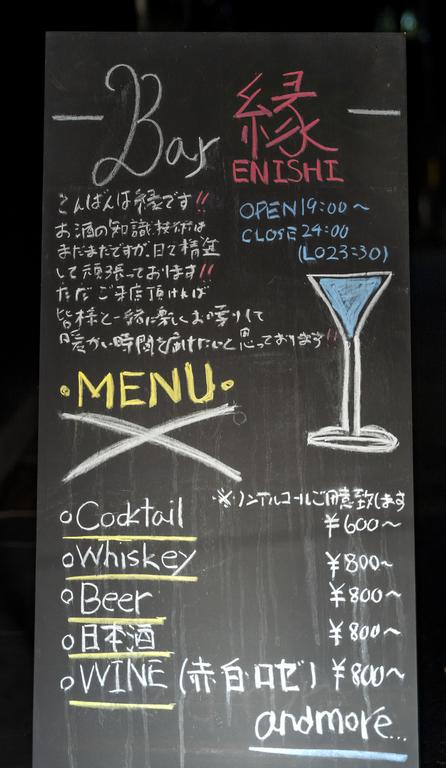 Bar 縁
ENISHI
OPEN 19:00〜
CLOSE 24:00
(LO23:30)
こんばんは縁です!!
お酒の知識、技術は
まだまだですが、日々精進
して頑張っております!!
ただご来店頂ければ
皆様と一緒に楽しくお喋りして
暖かい時間を届けたいと思っております!!
・MENU・
※ノンアルコールご用意致します
Cocktail ¥600〜
Whiskey ¥800〜
Beer ¥800〜
日本酒 ¥800〜
WINE (赤・白・ロゼ) ¥800〜
andmore...